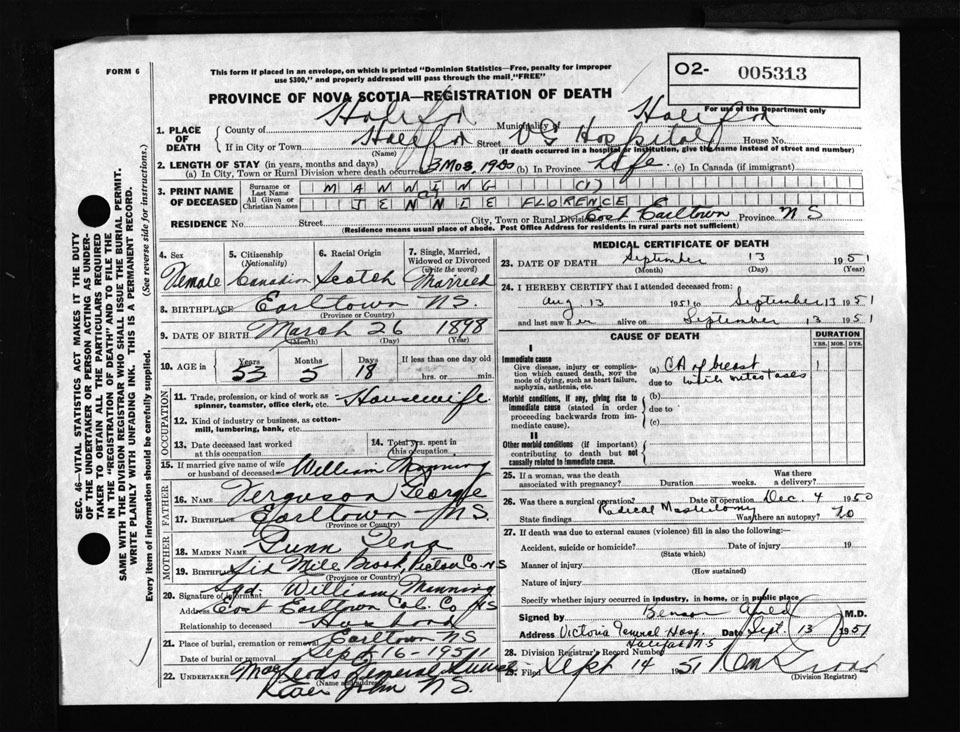 FORM 6
This form if placed in an envelope, on which is printed "Dominion Statistics—Free, penalty for improper
use $300," and properly addressed will pass through the mail, "FREE"
O2- 005313
PROVINCE OF NOVA SCOTIA—REGISTRATION OF DEATH
For use of the Department only
1. PLACE OF DEATH
County of Halifax Municipality of Halifax
If in City or Town Halifax Street VG Hospital House No.
(Name) (If death occurred in a hospital or institution, give the name instead of street and number)
2. LENGTH OF STAY (in years, months and days)
(a) In City, Town or Rural Division where death occurred 3 Mos. (b) In Province Life (c) In Canada (if immigrant)
3. PRINT NAME OF DECEASED
Surname or Last Name MANNING
All Given or Christian Names JENNIE FLORENCE
RESIDENCE No. Street City, Town or Rural Division East Earltown Province NS
(Residence means usual place of abode. Post Office Address for residents in rural parts not sufficient)
4. Sex Female
5. Citizenship (Nationality) Canadian
6. Racial Origin Scotch
7. Single, Married, Widowed or Divorced (write the word) Married
8. BIRTHPLACE Earltown NS.
(Province or Country)
9. DATE OF BIRTH March 26 1898
(Month) (Day) (Year)
10. AGE in Years 53 Months 5 Days 18 If less than one day old hrs. or min.
OCCUPATION
11. Trade, profession, or kind of work as spinner, teamster, office clerk, etc. Housewife
12. Kind of industry or business, as cotton-mill, lumbering, bank, etc.
13. Date deceased last worked at this occupation
14. Total yrs. spent in this occupation
15. If married give name of wife or husband of deceased William Manning
FATHER
16. NAME Ferguson George
17. BIRTHPLACE Earltown NS.
(Province or Country)
MOTHER
18. MAIDEN NAME Gunn Tena
19. BIRTHPLACE Six Mile Brook, Pictou Co. NS
(Province or Country)
20. Signature of informant Sgd. William Manning
Address East Earltown Col. Co NS
Relationship to deceased Husband
21. Place of burial, cremation or removal Earltown NS
Date of burial or removal Sept 16 - 1951
22. UNDERTAKER MacLeods Funeral
(Name and address) River John N.S.
MEDICAL CERTIFICATE OF DEATH
23. DATE OF DEATH September 13 1951
(Month) (Day) (Year)
24. I HEREBY CERTIFY that I attended deceased from:
Aug. 13 1951 to September 13 1951
and last saw her alive on September 13 1951
CAUSE OF DEATH DURATION
YRS. MOS. DYS.
I
Immediate cause
Give disease, injury or complication which caused death, NOT the mode of dying, such as heart failure, asphyxia, asthenia, etc.
(a) CA of breast 1
due to with metastases
Morbid conditions, if any, giving rise to immediate cause (stated in order proceeding backwards from immediate cause).
(b)
due to
(c)
II
Other morbid conditions (if important) contributing to death but not causally related to immediate cause.
25. If a woman, was the death associated with pregnancy? Duration weeks. Was there a delivery?
26. Was there a surgical operation? Date of operation Dec. 4 1950
State findings Radical Mastectomy Was there an autopsy? No
27. If death was due to external causes (violence) fill in also the following:—
Accident, suicide or homicide? Date of injury 19
(State which)
Manner of injury
(How sustained)
Nature of injury
Specify whether injury occurred in industry, in home, or in public place
Signed by Benson M.D.
Address Victoria General Hosp. Date Sept 13 1951
Halifax NS
28. Division Registrar's Record Number
29. Filed Sept 14 51
(Division Registrar)
SEC. 46—VITAL STATISTICS ACT MAKES IT THE DUTY
OF THE UNDERTAKER OR PERSON ACTING AS UNDERTAKER
TO OBTAIN ALL THE PARTICULARS REQUIRED
IN THE "REGISTRATION OF DEATH" AND TO FILE THE
SAME WITH THE DIVISION REGISTRAR WHO SHALL ISSUE THE BURIAL PERMIT.
WRITE PLAINLY WITH UNFADING INK. THIS IS A PERMANENT RECORD.
Every item of information should be carefully supplied. (See reverse side for instructions.)